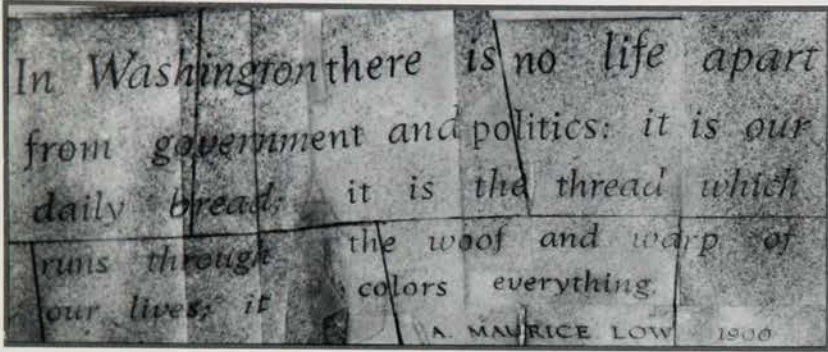 In Washington there is no life apart
from government and politics: it is our
daily bread; it is the thread which
runs through the woof and warp of
our lives; it colors everything.
A. MAURICE LOW 1900